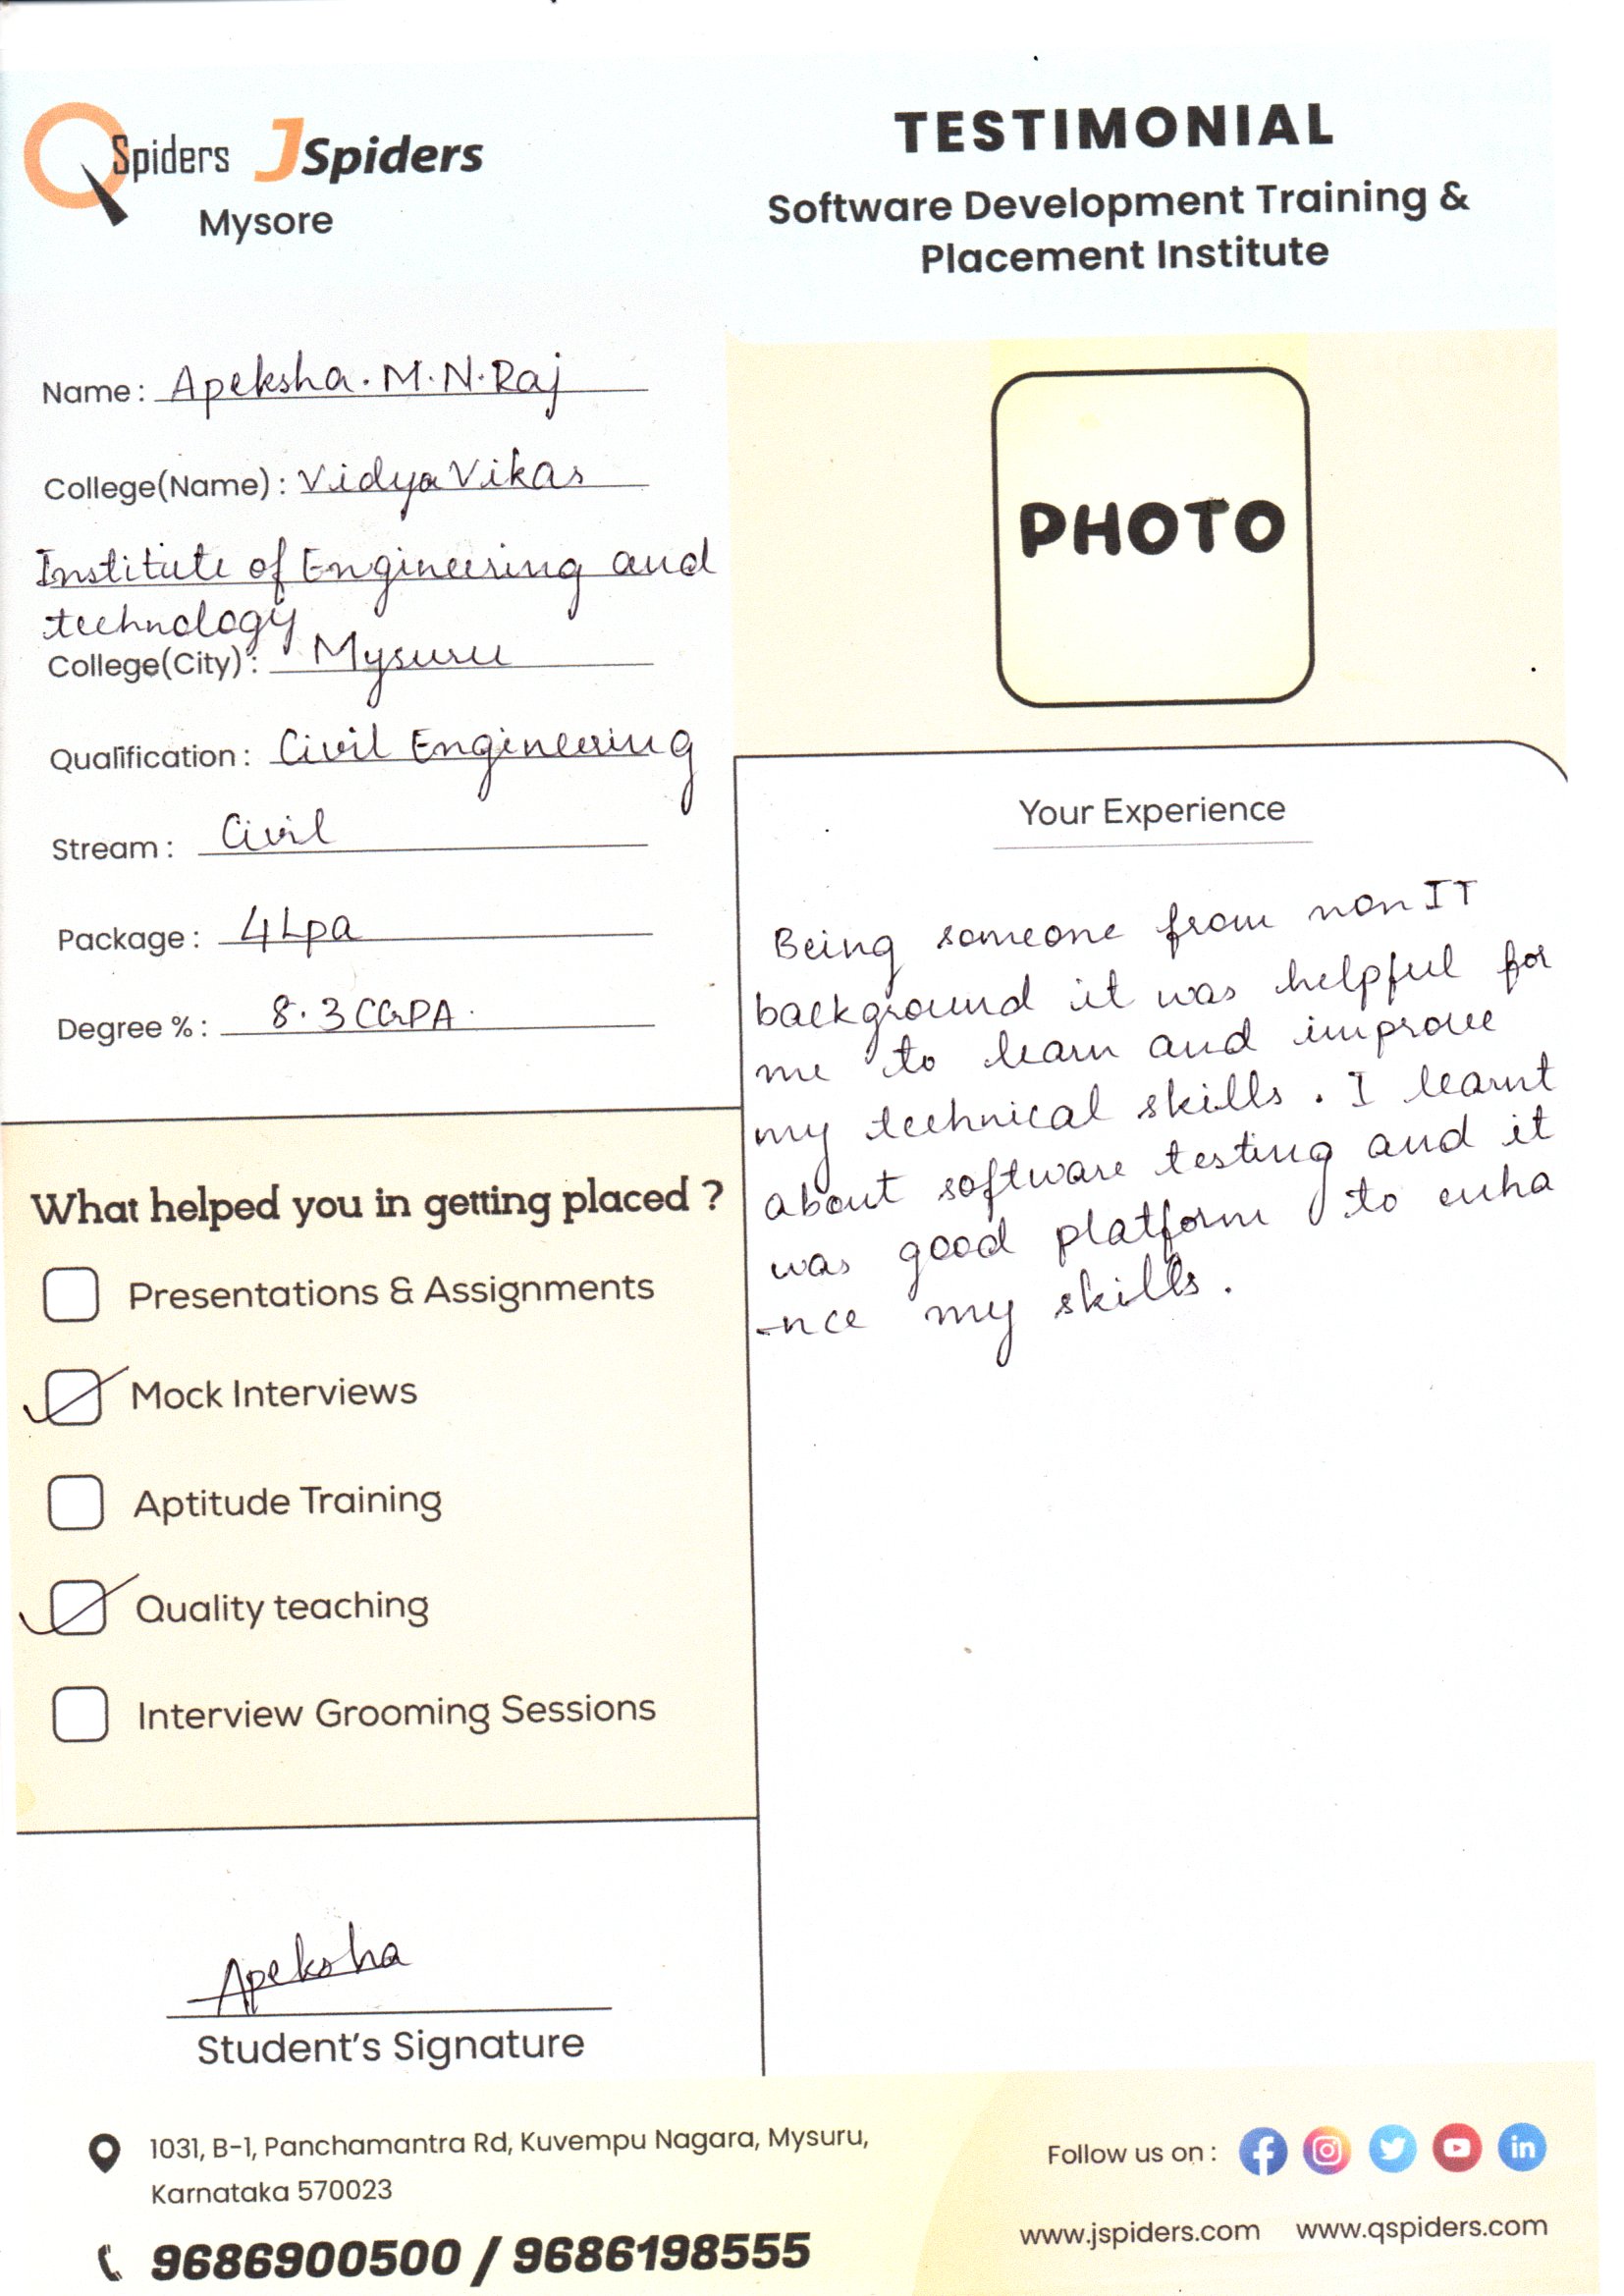 QSpiders JSpiders
Mysore
TESTIMONIAL
Software Development Training &
Placement Institute
Name : Apeksha. M. N. Raj
College(Name) : Vidya Vikas
Institute of Engineering and
technology
College(City) : Mysuru
Qualification : Civil Engineering
Stream : Civil
Package : 4 Lpa
Degree % : 8.3 CGPA.
PHOTO
Your Experience
Being someone from non IT
background it was helpful for
me to learn and improve
my technical skills. I learnt
about software testing and it
was good platform to enha
-nce my skills.
What helped you in getting placed ?
Presentations & Assignments
Mock Interviews
Aptitude Training
Quality teaching
Interview Grooming Sessions
Apeksha
Student's Signature
1031, B-1, Panchamantra Rd, Kuvempu Nagara, Mysuru,
Karnataka 570023
9686900500 / 9686198555
Follow us on :
www.jspiders.com www.qspiders.com